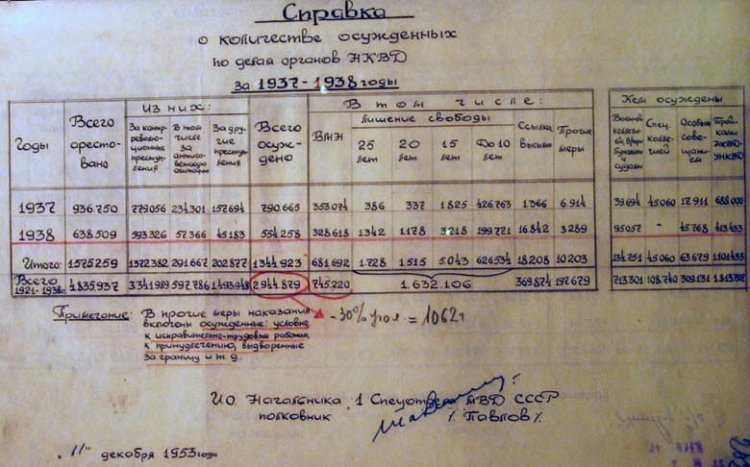 Справка
о количестве осужденных
по делам органов НКВД
за 1937-1938 годы
Годы
Всего арестовано
Из них:
За контрреволюционные преступления
В том числе за антисоветскую агитацию
За другие преступления
Всего осуждено
В том числе:
ВМН
лишение свободы
25 лет
20 лет
15 лет
До 10 лет
Ссылка высылка
Прочие меры
Кем осуждены
Спец коллегией
Особым совещанием
1937 936.750 779056 234301 157694 790.665 353.074 386 337 1.825 426.763 1366 6.914 39.694 45.060 17.911 688.000
1938 638.509 593.326 57.366 45.183 554.258 328.618 1342 1.178 3.218 199.771 16.842 3.289 95.057 - 45.768 413.433
Итого: 1575259 1372382 291.667 202877 1344.923 681.692 1.728 1.515 5.043 626.534 18.208 10.203 134.751 45.060 63.679 1101433
Всего 1921-1938г. 4.835.937 3341.989 597.786 1493948 2944.879 745.220 1.632.106 369.874 197.679 713.301 108.740 309.131
Примечание: В прочие меры наказания
включены осужденные: условно
к исправительно-трудовым работам,
к принудлечению, выдворенные
за границу и т.д.
-30%
= 1062т
ИО Начальника 1 Спецотдела МВД СССР
полковник /Павлов/
"11" декабря 1953 года